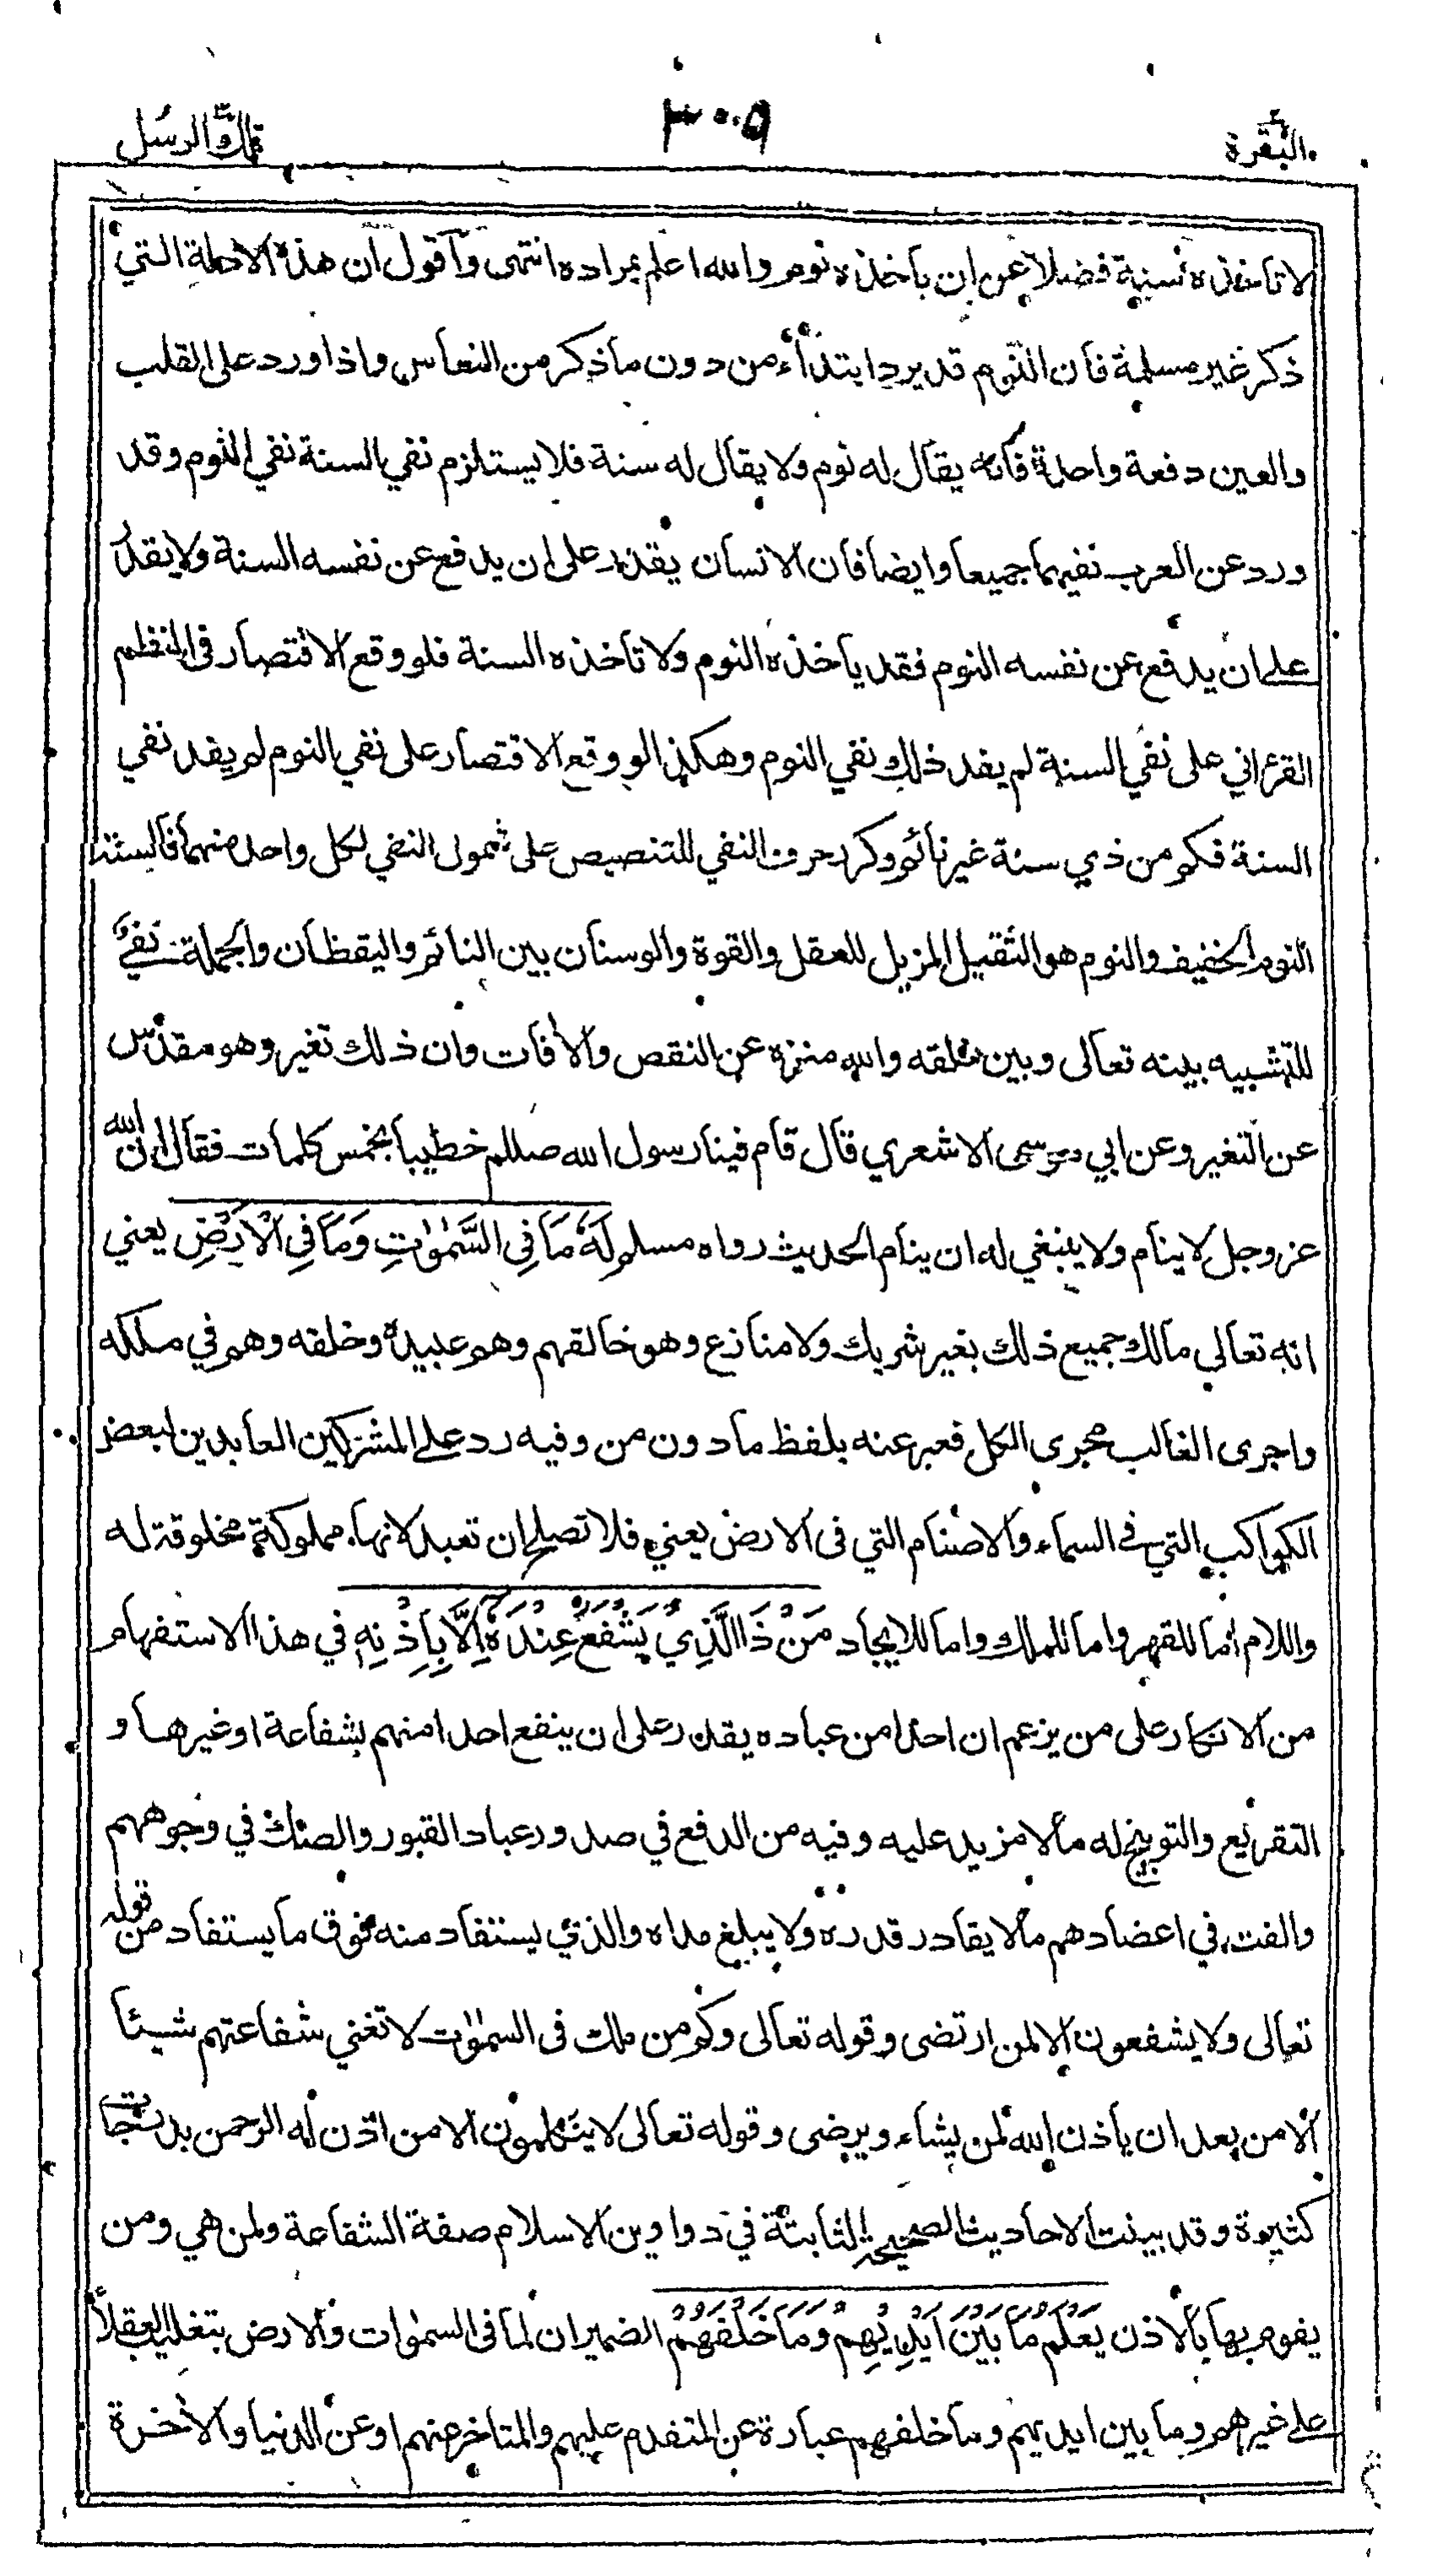 البقرة
٣٠٥
تلك الرسل
لا تاخذه سنة فضلا عن ان ياخذه نوم والله اعلم بمراده انتهى وأقول ان هذه الاولية التي
ذكر غير مسلمة فان النوم قد يرد ابتداء من دون ما ذكر من النعاس واذا ورد على القلب
والعين دفعة واحدة فانه يقال له نوم ولا يقال له سنة فلا يستلزم نفي السنة نفي النوم وقد
ورد عن العرب نفيهما جميعا وايضا فان الانسان يقدر على ان يدفع عن نفسه السنة ولا يقدر
على ان يدفع عن نفسه النوم فقد ياخذه النوم ولا تاخذه السنة فلو وقع الاقتصار فى النظم
القرءاني على نفي السنة لم يفد ذلك نفي النوم وهكذا لو وقع الاقتصار على نفي النوم لم يفد نفي
السنة فكم من ذي سنة غير نائم وكرر حرف النفي للتنصيص على شمول النفي لكل واحد منهما فالسنة
النوم الخفيف والنوم هو الثقيل المزيل للعقل والقوة والوسنان بين النائم واليقظان والجملة نفي
للتشبيه بينه تعالى وبين خلقه والله منزه عن النقص والأفات وان ذلك تغير وهو مقدس
عن التغير وعن ابي موسى الاشعري قال قام فينا رسول الله صللم خطيبا بخمس كلمات فقال ان الله
عز وجل لا ينام ولا ينبغي له ان ينام الحديث رواه مسلم لَهُ مَا فِي السَّمٰوٰتِ وَمَا فِي الْاَرْضِ يعني
انه تعالى مالك جميع ذلك بغير شريك ولا منازع وهو خالقهم وهم عبيده وخلقه وهم في ملكه
واجرى الغالب مجرى الكل فعبر عنه بلفظ ما دون من وفيه رد على المشركين العابدين لبعض
الكواكب التي في السماء والاصنام التي فى الارض يعني فلا تصلح ان تعبد لانها مملوكة مخلوقة له
واللام اما للقهر واما للملك واما للايجاد مَنْ ذَا الَّذِي يَشْفَعُ عِنْدَهٗ اِلَّا بِاِذْنِهٖ في هذا الاستفهام
من الانكار على من يزعم ان احدا من عباده يقدر على ان ينفع احدا منهم بشفاعة او غيرها و
التقريع والتوبيخ له ما لا مزيد عليه وفيه من الدفع في صدور عباد القبور والصك في وجوههم
والفت في اعضادهم ما لا يقادر قدره ولا يبلغ مداه والذي يستفاد منه فوق ما يستفاد من قوله
تعالى ولا يشفعون الا لمن ارتضى وقوله تعالى وكم من ملك فى السمٰوٰت لا تغني شفاعتهم شيئا
الا من بعد ان يأذن الله لمن يشاء ويرضى وقوله تعالى لا يتكلمون الا من اذن له الرحمن بدرجات
كثيرة وقد بينت الاحاديث الصحيحة الثابتة في دواوين الاسلام صفة الشفاعة ولمن هي ومن
يقوم بها بالاذن يَعْلَمُ مَا بَيْنَ اَيْدِيْهِمْ وَمَا خَلْفَهُمْ الضميران لما فى السمٰوات والارض بتغليب العقلاء
على غيرهم وما بين ايديهم وما خلفهم عبارة عن المتقدم عليهم والمتاخر عنهم او عن الدنيا والأخرة